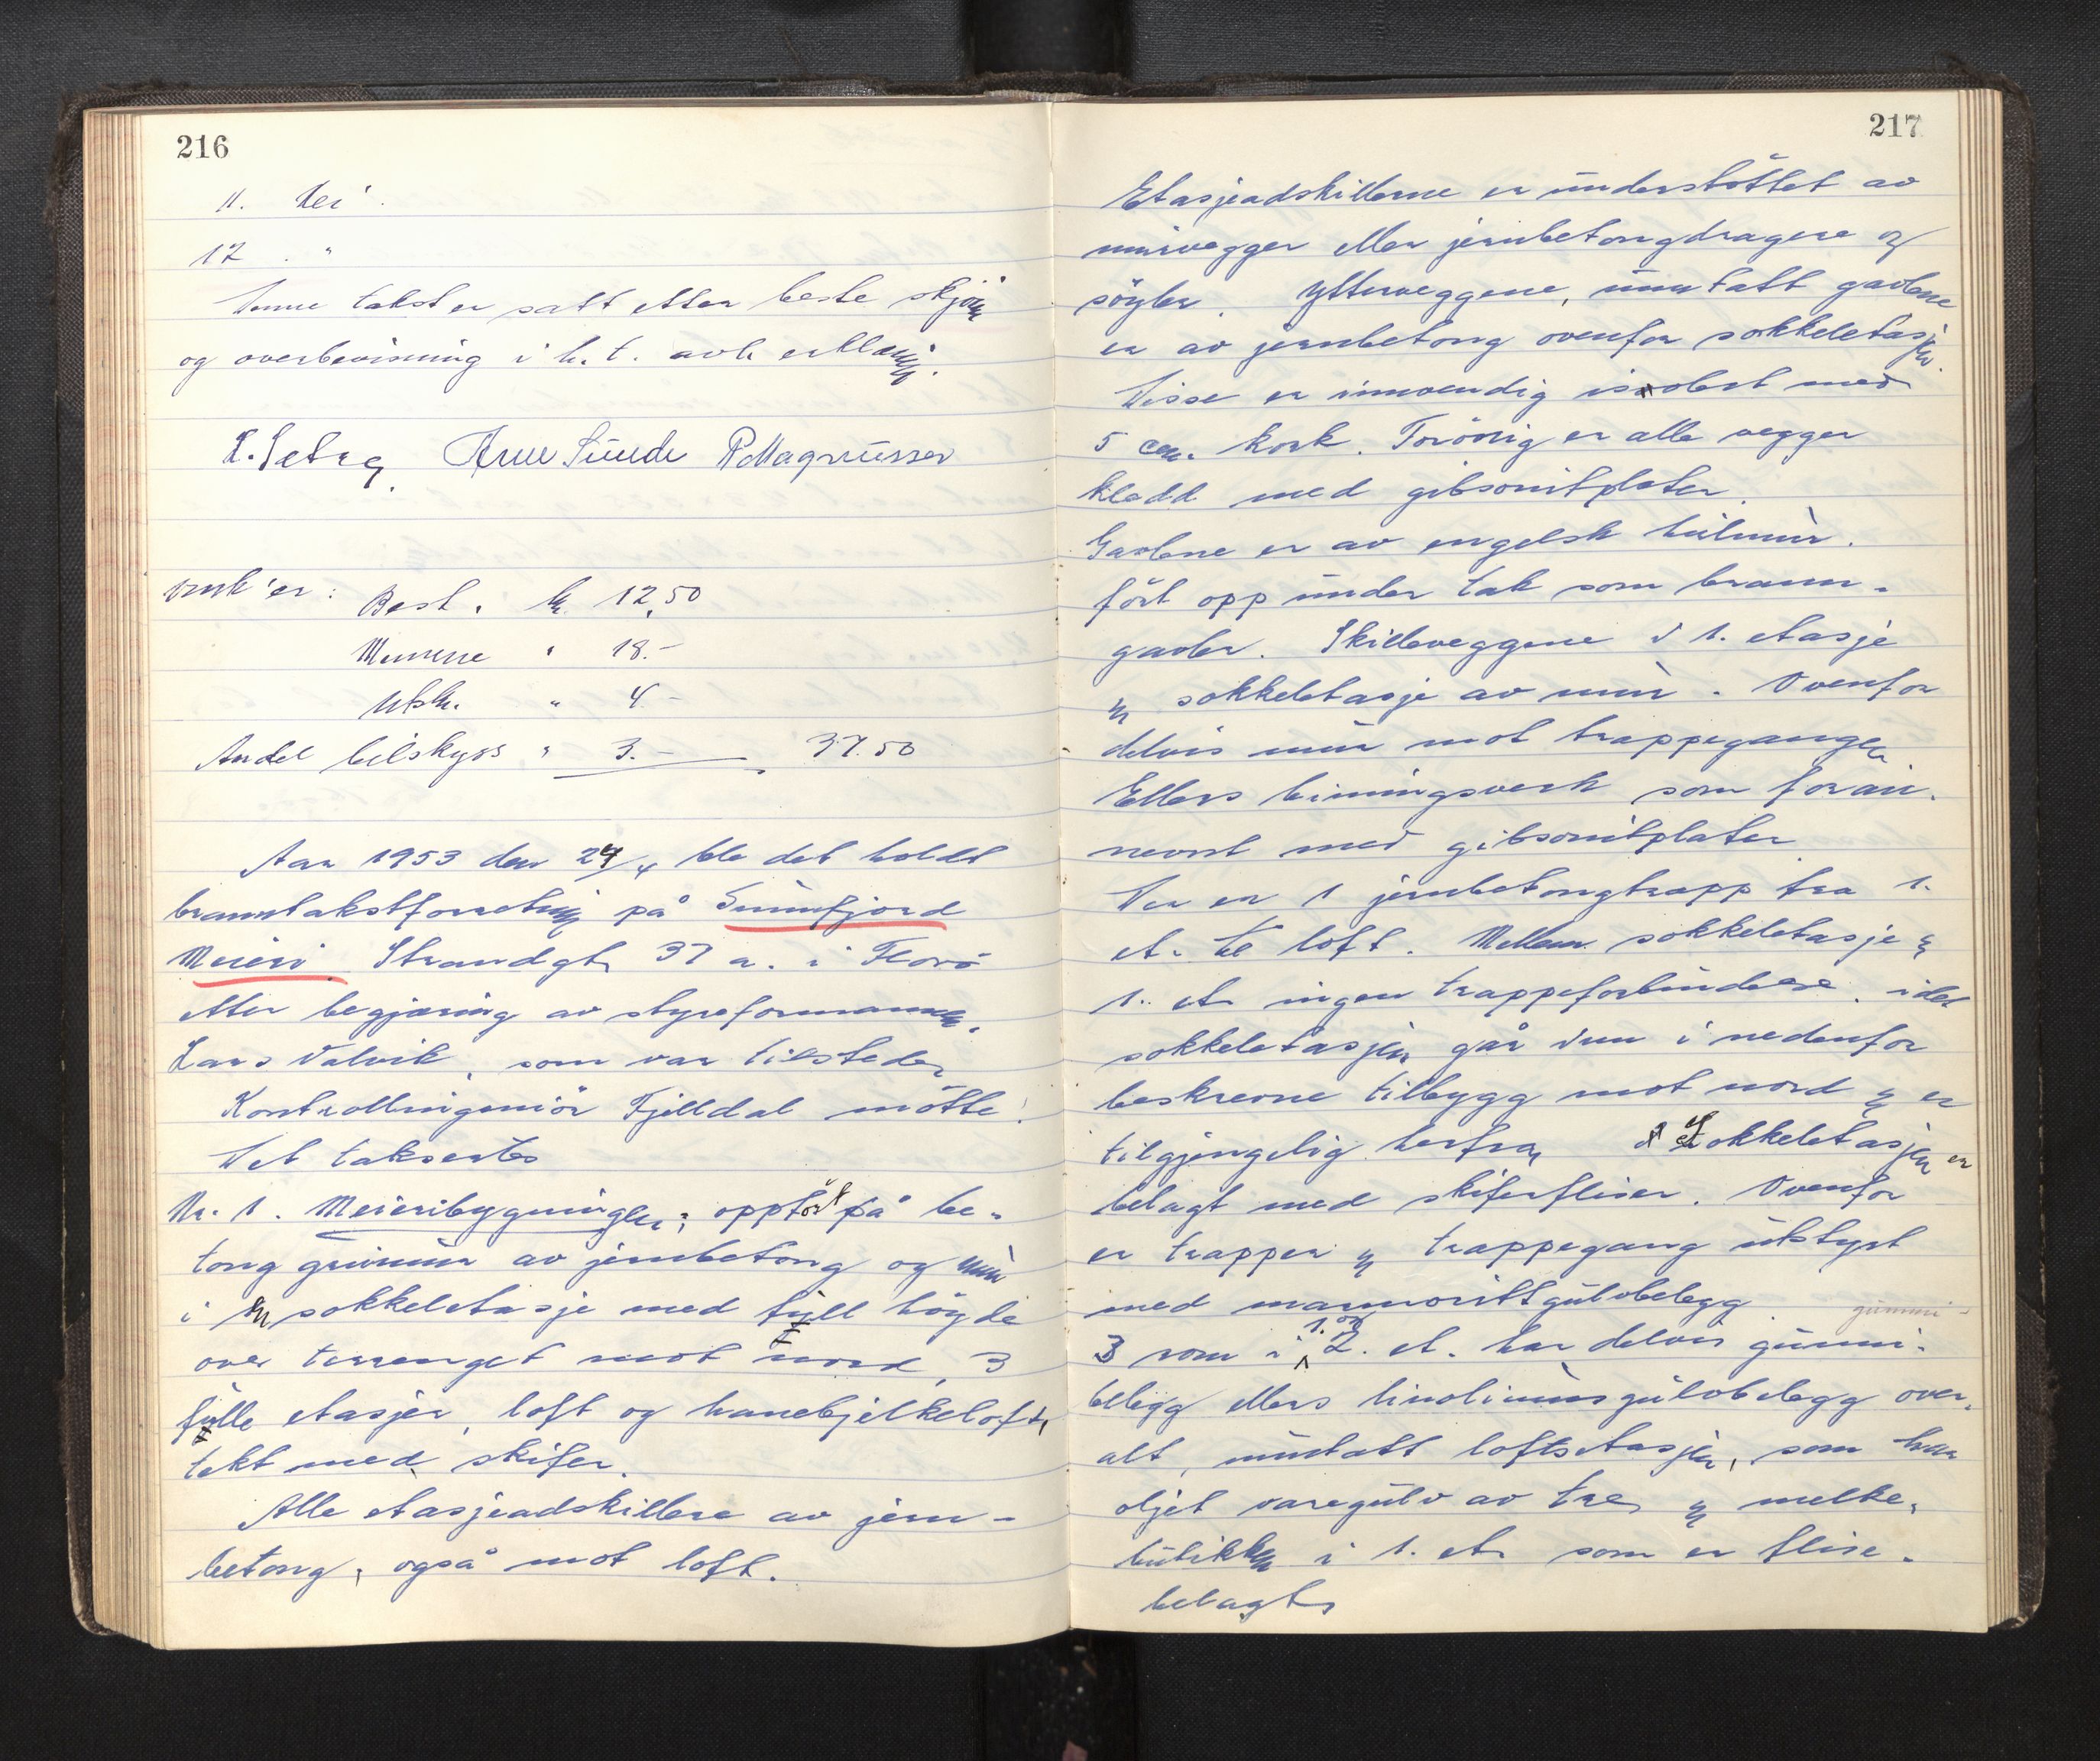 216
11. Nei.
12 . "
Denne takst er satt etter beste skjønn
og overbevisning i h. t. avl. erklæring.
L. Sætre, Arne Sunde R Magnussen
Omk'er: Best. kr. 12,50
Mennene " 18.-
Utskr. " 4 -
Andel bilskyss " 3.- 37.50
Aar 1953 den 24/4 ble det holdt
branntakstforretning på Sunnfjord
Meieri Strandgt. 37 a. i Florø
etter begjæring av styreformannen,
Lars Valvik, som var tilstede.
Kontrollingeniør Fjelldal møtte.
Det taksertes
Nr. 1. Meieribygningen; oppført på be-
tong grunnmur av jernbetong og mur
i en sokkeletasje med full høgde
over terrenget mot nord, 3
fulle etasjer, loft og hanebjelkeloft,
tekt med skifer.
Alle etasjeadskillere av jern-
betong, også mot loft.
217
Etasjeadskillerne er understøttet av
murvegger eller jernbetongdragere og
søyler. Ytterveggene, unntatt gavlene
er av jernbetong ovenfor sokkeletasjen.
Disse er innvendig isolert med
5 cm. kork. Forøvrig er alle vegger
kledd med gibsonitplater.
Gavlene er av engelsk hulmur.
ført opp under tak som brann-
gavler. Skilleveggene i 1. etasje
og sokkeletasje av mur. Ovenfor
delvis mur mot trappegangen
Ellers binningsverk som foran.
nevnt med gibsonitplater
Der er 1 jernbetongtrapp fra 1.
et. til loft. Mellem sokkeletasje og
1. et. ingen trappeforbindelse, idet
sokkeletasjen går inn i nedenfor
beskrevne tilbygg mot nord og er
tilgjengelig herfra, Sokkeletasjen er
belagt med skiferfliser. Ovenfor
er trapper og trappegang utstyrt
med marmorittgulvbelegg gummi-
3 rom i 1. og 2. et. har delvis gummi-
belegg ellers linoliumsgulvbelegg over-
alt, unntatt loftsetasjen, som har
oljet varegulv av tre, og melke-
butikken i 1. et. som er flise-
belagt,